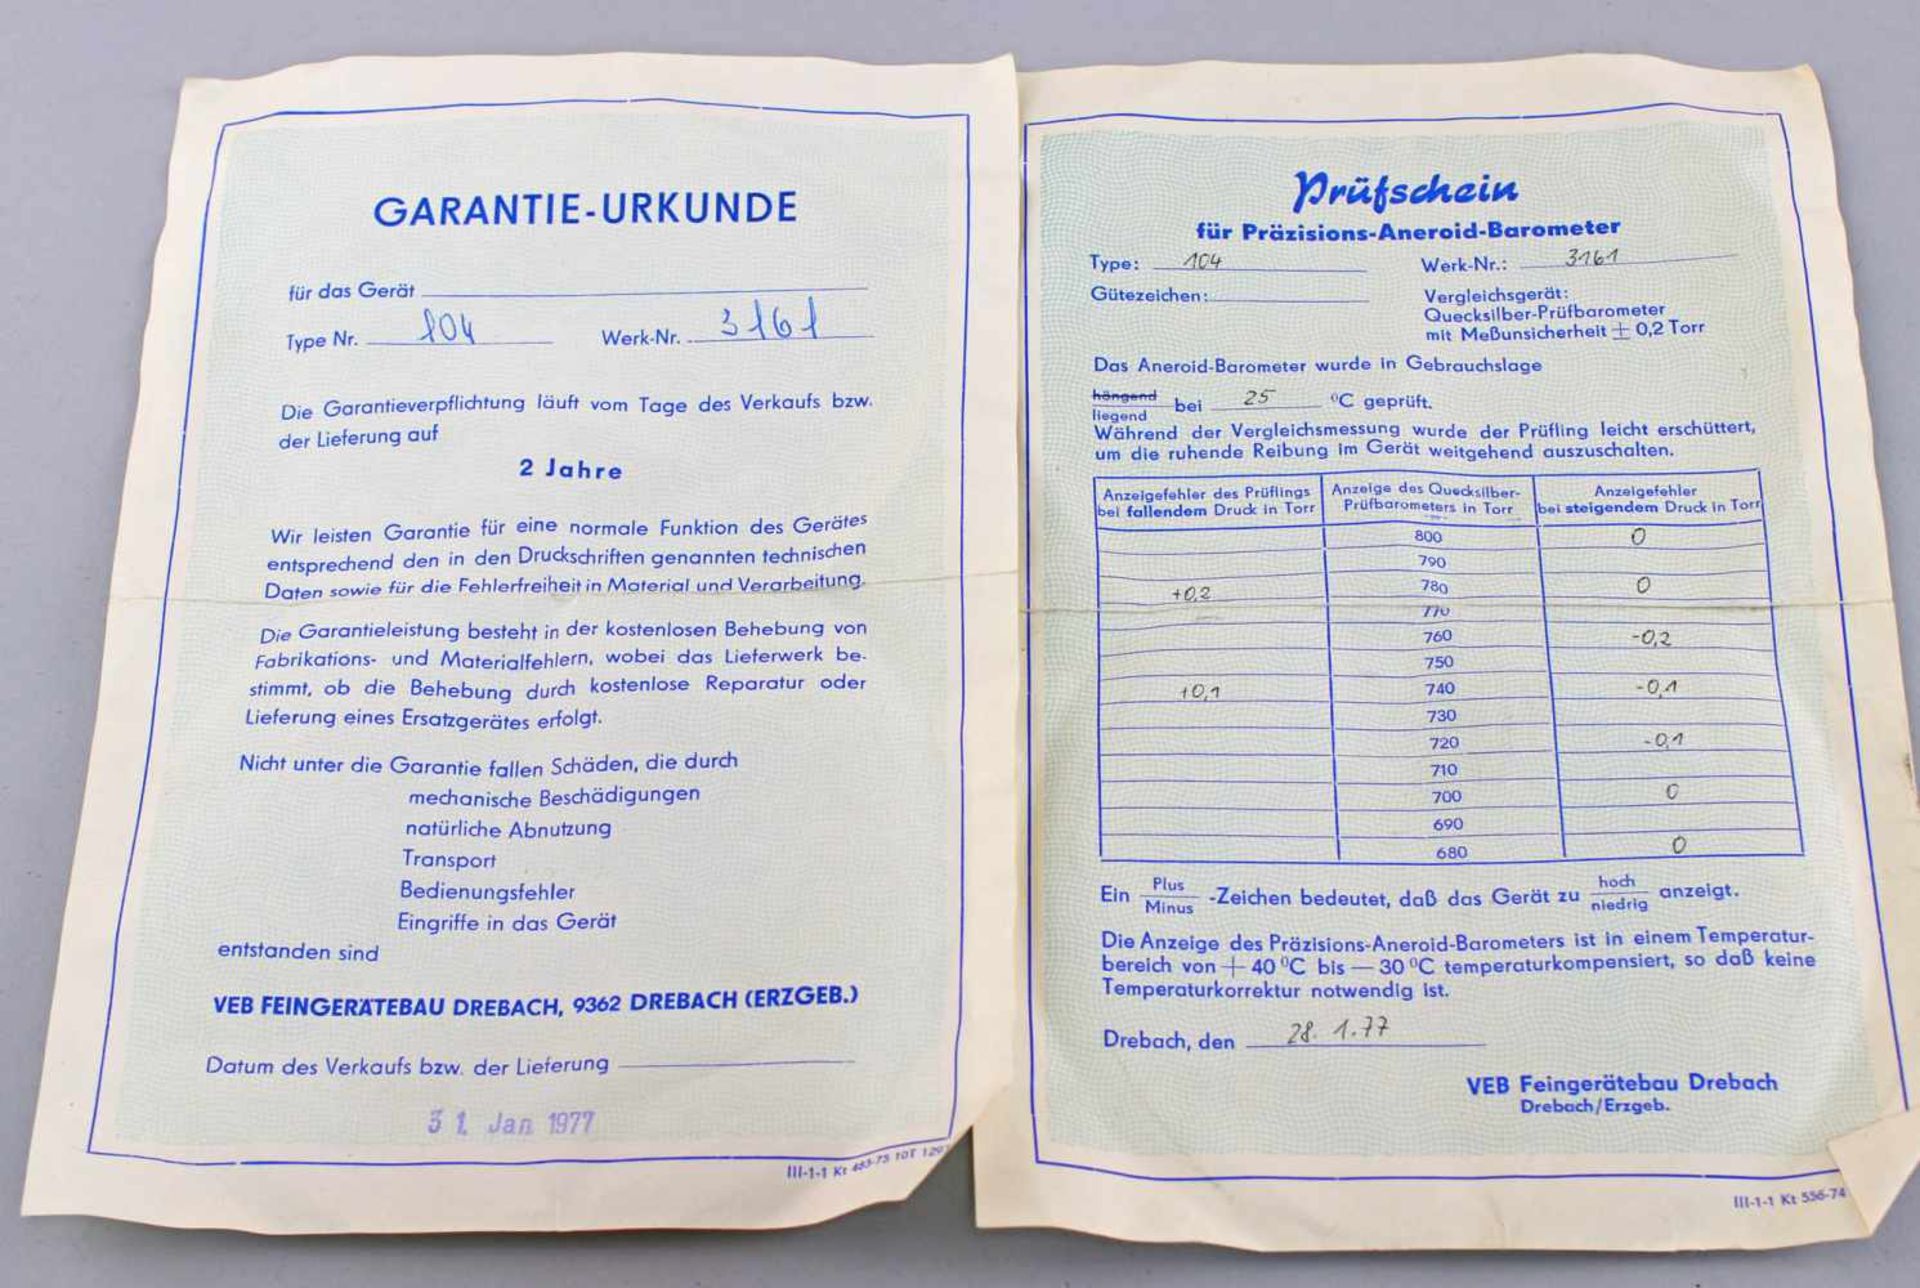 GARANTIE-URKUNDE
für das Gerät
Type Nr. 104 Werk-Nr. 3161
Die Garantieverpflichtung läuft vom Tage des Verkaufs bzw.
der Lieferung auf
2 Jahre
Wir leisten Garantie für eine normale Funktion des Gerätes
entsprechend den in den Druckschriften genannten technischen
Daten sowie für die Fehlerfreiheit in Material und Verarbeitung.
Die Garantieleistung besteht in der kostenlosen Behebung von
Fabrikations- und Materialfehlern, wobei das Lieferwerk be-
stimmt, ob die Behebung durch kostenlose Reparatur oder
Lieferung eines Ersatzgerätes erfolgt.
Nicht unter die Garantie fallen Schäden, die durch
mechanische Beschädigungen
natürliche Abnutzung
Transport
Bedienungsfehler
Eingriffe in das Gerät
entstanden sind
VEB FEINGERÄTEBAU DREBACH, 9362 DREBACH (ERZGEB.)
Datum des Verkaufs bzw. der Lieferung
31. Jan 1977
III-1-1 Kt 10T
Prüfschein
für Präzisions-Aneroid-Barometer
Type: 104 Werk-Nr.: 3161
Gütezeichen: Vergleichsgerät:
Quecksilber-Prüfbarometer
mit Meßunsicherheit ± 0,2 Torr
Das Aneroid-Barometer wurde in Gebrauchslage
hängend
liegend bei 25 °C geprüft.
Während der Vergleichsmessung wurde der Prüfling leicht erschüttert,
um die ruhende Reibung im Gerät weitgehend auszuschalten.
Anzeigefehler des Prüflings Anzeige des Quecksilber- Anzeigefehler
bei fallendem Druck in Torr Prüfbarometers in Torr bei steigendem Druck in Torr
800 0
790
+0,2 780 0
770
760 -0,2
750
+0,1 740 -0,1
730
720 -0,1
710
700 0
690
680 0
Ein Plus/Minus -Zeichen bedeutet, daß das Gerät zu hoch/niedrig anzeigt.
Die Anzeige des Präzisions-Aneroid-Barometers ist in einem Temperatur-
bereich von + 40 °C bis — 30 °C temperaturkompensiert, so daß keine
Temperaturkorrektur notwendig ist.
Drebach, den 28. 1. 77
VEB Feingerätebau Drebach
Drebach/Erzgeb.
III-1-1 Kt 556-74